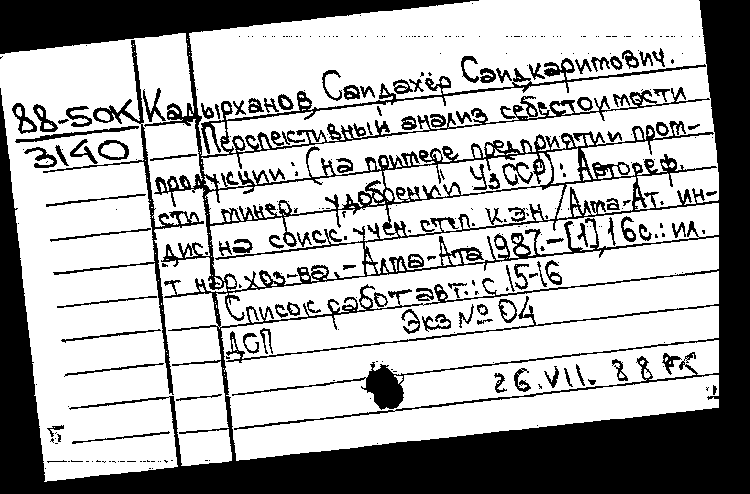 88-50К Кадырханов, Саидахёр Саидкаримович.
3140
Перспективный анализ себестоимости
продукции: (на примере предприятий пром-
сти минер. удобрений УзССР): Автореф.
дис. на соиск. учен. степ. к.э.н. / Алма-Ат. ин-
т нар. хоз-ва. - Алма-Ата, 1987. - [1], 16 с.: ил.
Список работ авт.: с. 15-16
ДСП Экз № 04
26.VII. 88
Б